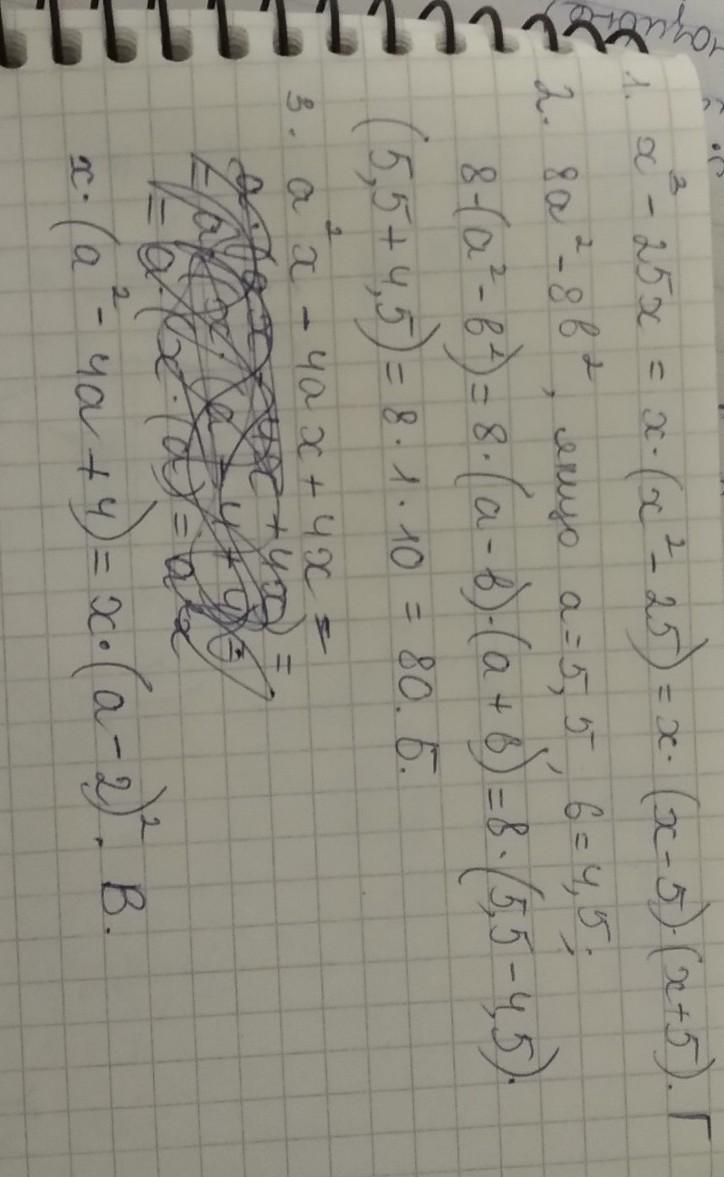 1. x³ - 25x = x·(x² - 25) = x·(x - 5)·(x + 5). Г
2. 8a² - 8b², якщо a = 5,5; b = 4,5;
8·(a² - b²) = 8·(a - b)·(a + b) = 8·(5,5 - 4,5)·
(5,5 + 4,5) = 8·1·10 = 80. Б.
3. a²x - 4ax + 4x =
x·(a² - 4a + 4) = x·(a - 2)². В.